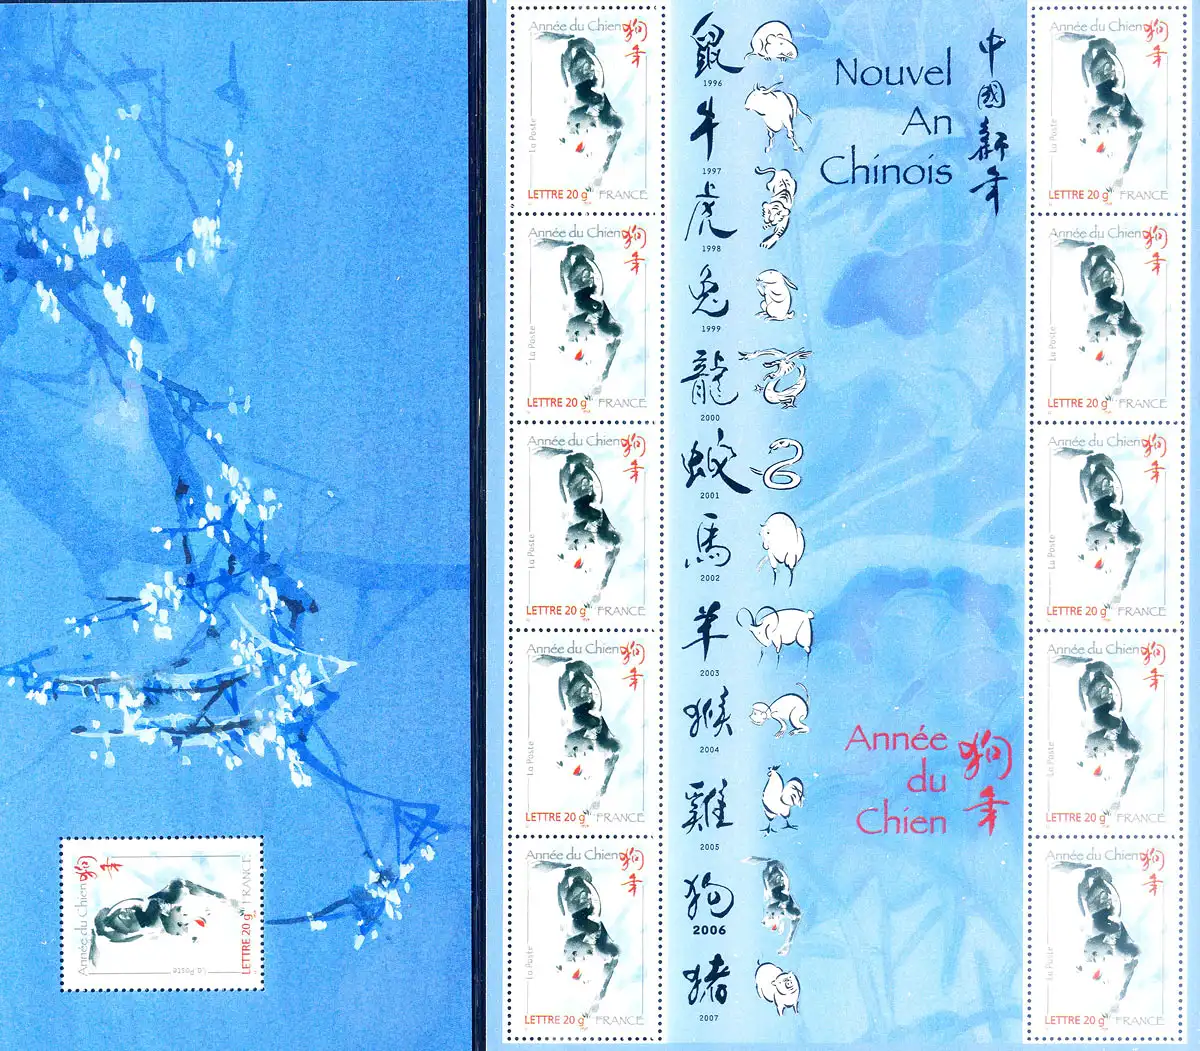 Année du Chien 狗年
La Poste
LETTRE 20 g FRANCE
Année du Chien 狗年
La Poste
LETTRE 20 g FRANCE
Année du Chien 狗年
La Poste
LETTRE 20 g FRANCE
Année du Chien 狗年
La Poste
LETTRE 20 g FRANCE
Année du Chien 狗年
La Poste
LETTRE 20 g FRANCE
Année du Chien 狗年
La Poste
LETTRE 20 g FRANCE
鼠
1996
牛
1997
虎
1998
兔
1999
龍
2000
蛇
2001
馬
2002
羊
2003
猴
2004
雞
2005
狗
2006
猪
2007
Nouvel
An
Chinois
中國新年
Année
du
Chien
狗年
Année du Chien 狗年
La Poste
LETTRE 20 g FRANCE
Année du Chien 狗年
La Poste
LETTRE 20 g FRANCE
Année du Chien 狗年
La Poste
LETTRE 20 g FRANCE
Année du Chien 狗年
La Poste
LETTRE 20 g FRANCE
Année du Chien 狗年
La Poste
LETTRE 20 g FRANCE